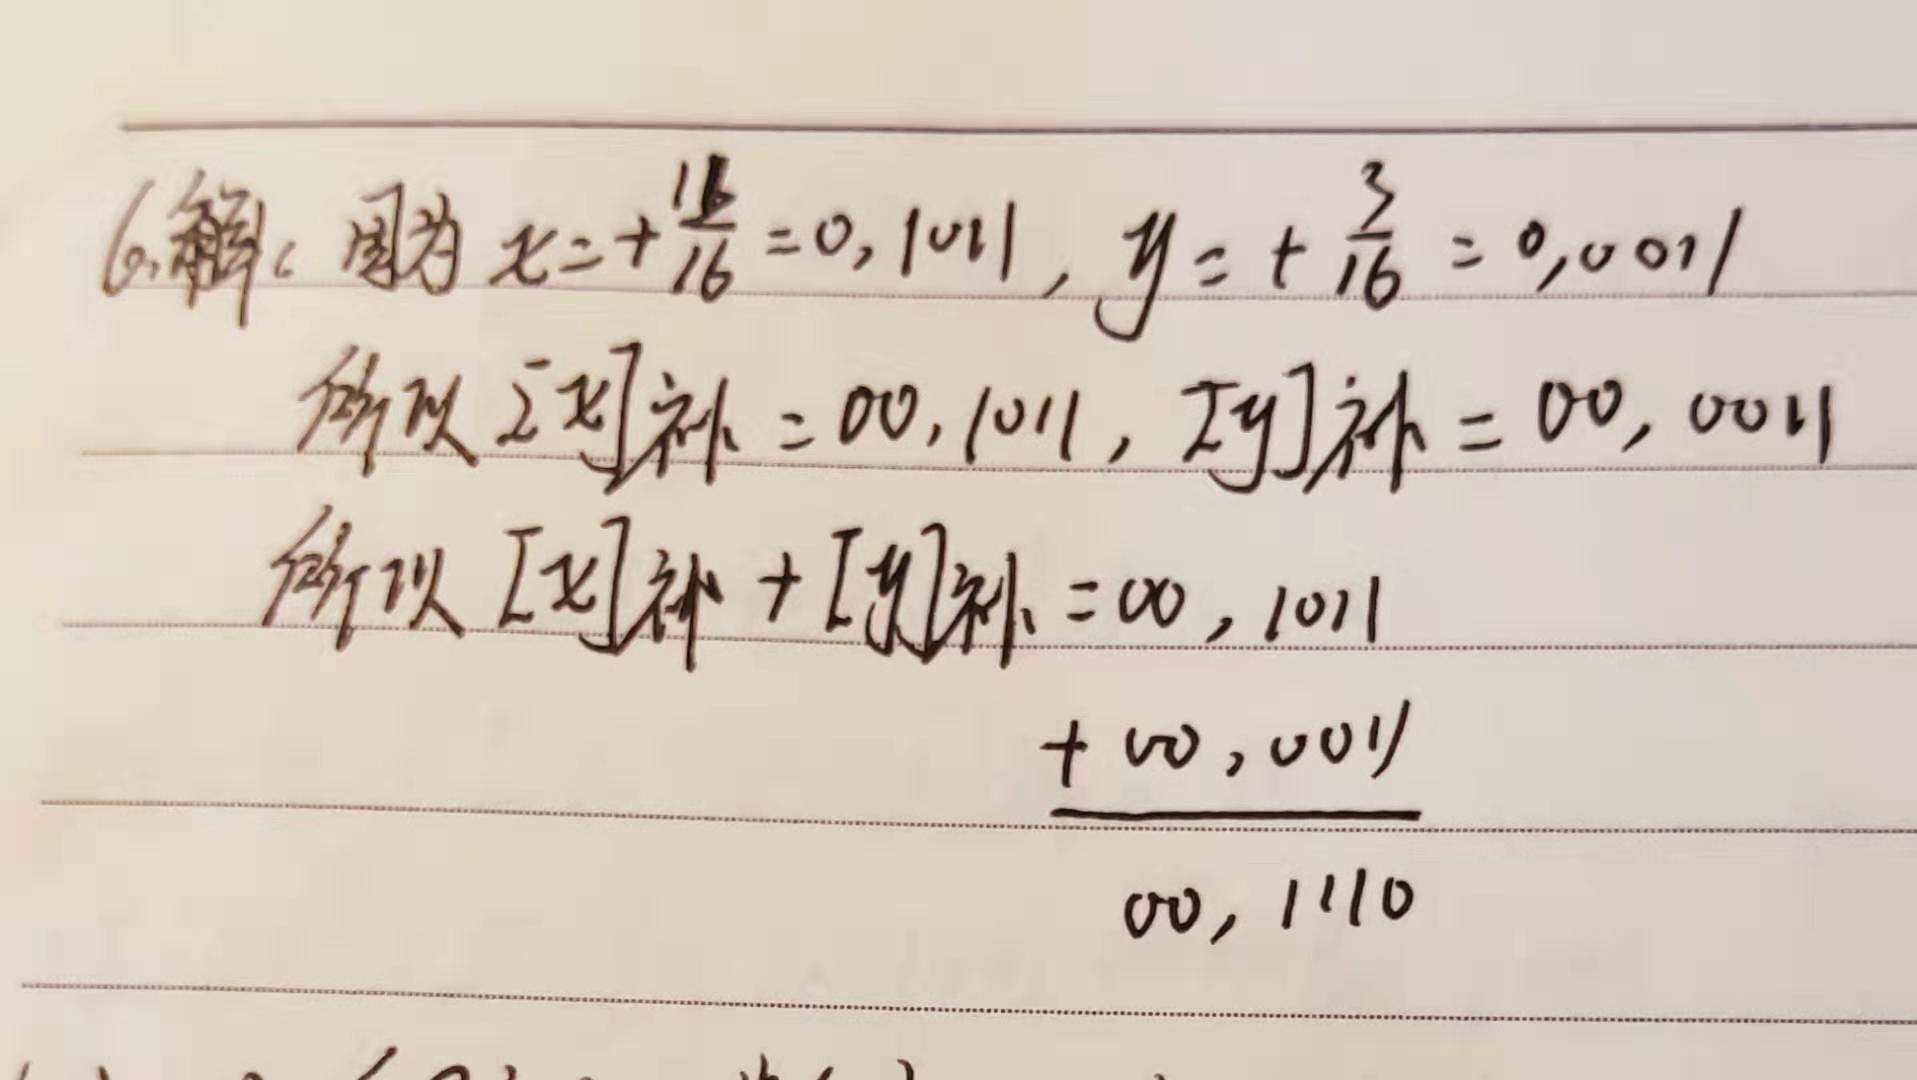 6.解: 因为 x=+11/16=0,1011, y=+3/16=0,0011
所以[x]补=00,1011, [y]补=00,0011
所以[x]补+[y]补=00,1011
+00,0011
00,1110